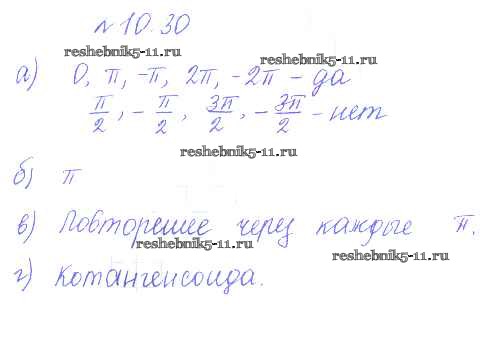 №10.30
reshebnik5-11.ru
reshebnik5-11.ru
а) 0, π, -π, 2π, -2π - да
π/2, -π/2, 3π/2, -3π/2 - нет
reshebnik5-11.ru
б) π
в) Повторение через каждые π.
reshebnik5-11.ru
reshebnik5-11.ru
г) Котангенсоида.